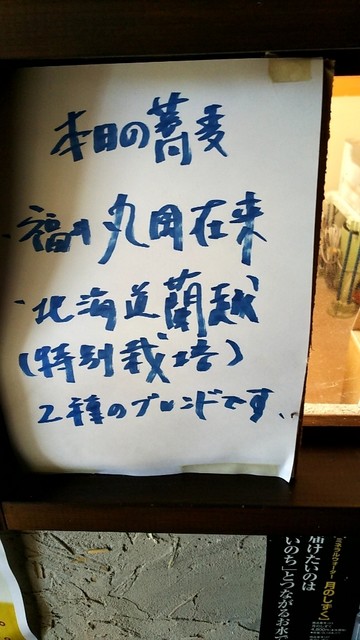 本日の蕎麦
・福井丸岡在来
・北海道蘭越
(特別栽培)
2種のブレンドです。
ミネラルウォーター 月のしずく
届けたいのは
いのち」とつながるお水で